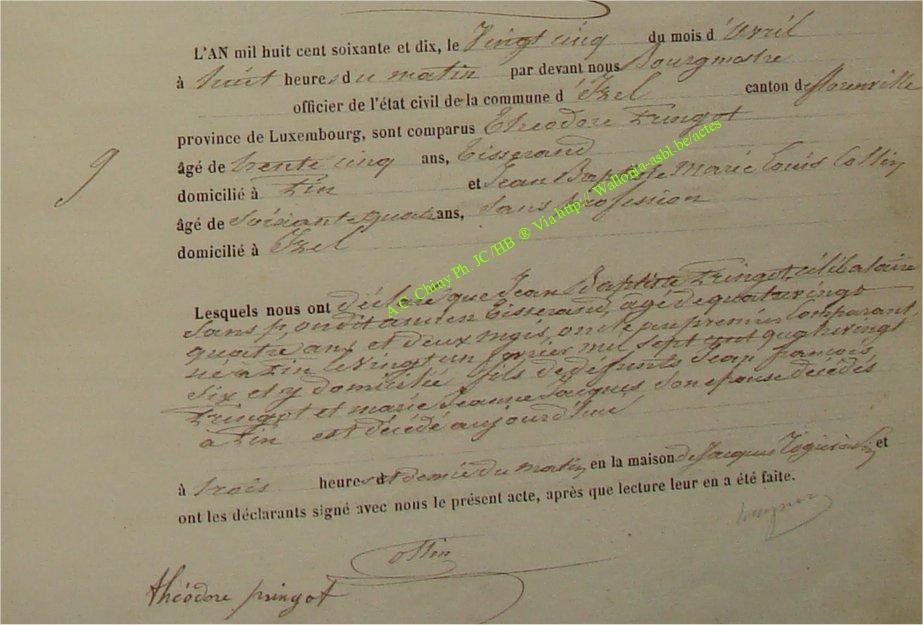 L'AN mil huit cent soixante et dix, le Vingt cinq du mois d'Avril
à huit heures du matin par devant nous Bourgmestre
officier de l'état civil de la commune d'Izel canton de florenville
province de Luxembourg, sont comparus théodore Pringot
9 âgé de trente cinq ans, tisserand
domicilié à Pin et Jean Baptiste Marie Louis Collin
âgé de soixante quatre ans, sans profession
domicilié à Izel
A.C. Chiny Ph. JC /HB ® Via http:// Wallonia-asbl.be/actes
Lesquels nous ont déclaré que Jean Baptiste Pringot, célibataire
sans ancien tisserand, agé de quatrevingt
quatre ans et deux mois, oncle du premier comparant
né a Pin le vingt un février mil sept cent quatrevingt
six et y domicilié fils de défunts Jean françois
Pringot et marie Jeanne Jacques son epouse décédés
a Pin est décédé aujourd'hui
à trois heures et demie du matin, en la maison de Jacques et
ont les déclarants signé avec nous le présent acte, après que lecture leur en a été faite.
Collin
théodore pringot